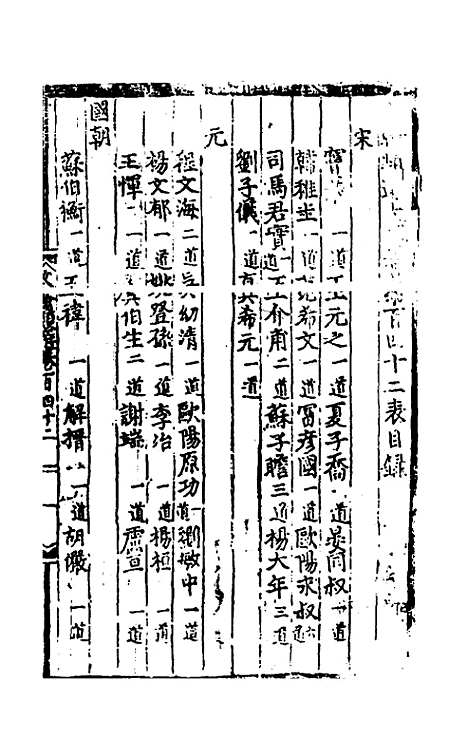 卷一百四十二表目録
宋
一道王元之一道夏子喬一道晏同叔一道
韓稚圭一道范希文一道富彦國一道歐陽永叔
司馬君實一道王介甫二道蘇子瞻三道楊大年三道
劉子儀一道真希元一道
元
程文海二道吴幼清一道歐陽原功一道劉敏中一道
楊文郁一道姚登孫一道李冶一道楊桓一道
王惲一道虞伯生二道謝端一道盧亘一道
國朝
蘇伯衡一道王禕一道解搢一道胡儼一道
百四十二